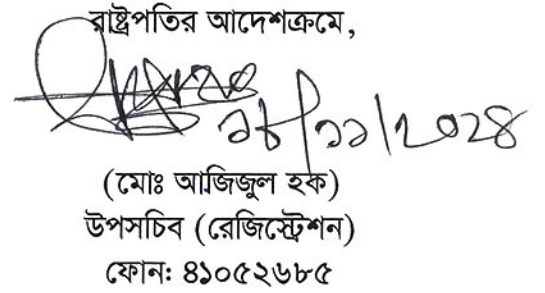 রাষ্ট্রপতির আদেশক্রমে,
১৮/১১/২০২৪
(মোঃ আজিজুল হক)
উপসচিব (রেজিস্ট্রেশন)
ফোন: ৪১০৫২৬৮৫